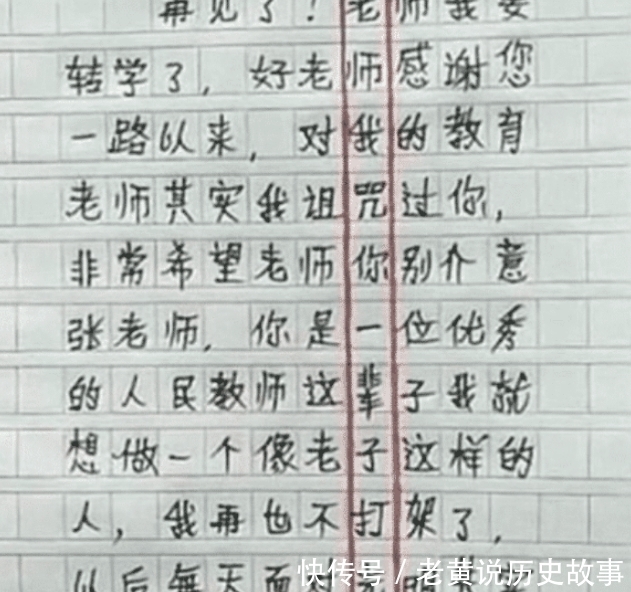 再见了！老师我要
转学了，好老师感谢您
一路以来，对我的教育
老师其实我诅咒过你，
非常希望老师你别介意
张老师，你是一位优秀
的人民教师这辈子我就
想做一个像老子这样的
人，我再也不打架了，
以后每天面对
快传号/老黄说历史故事